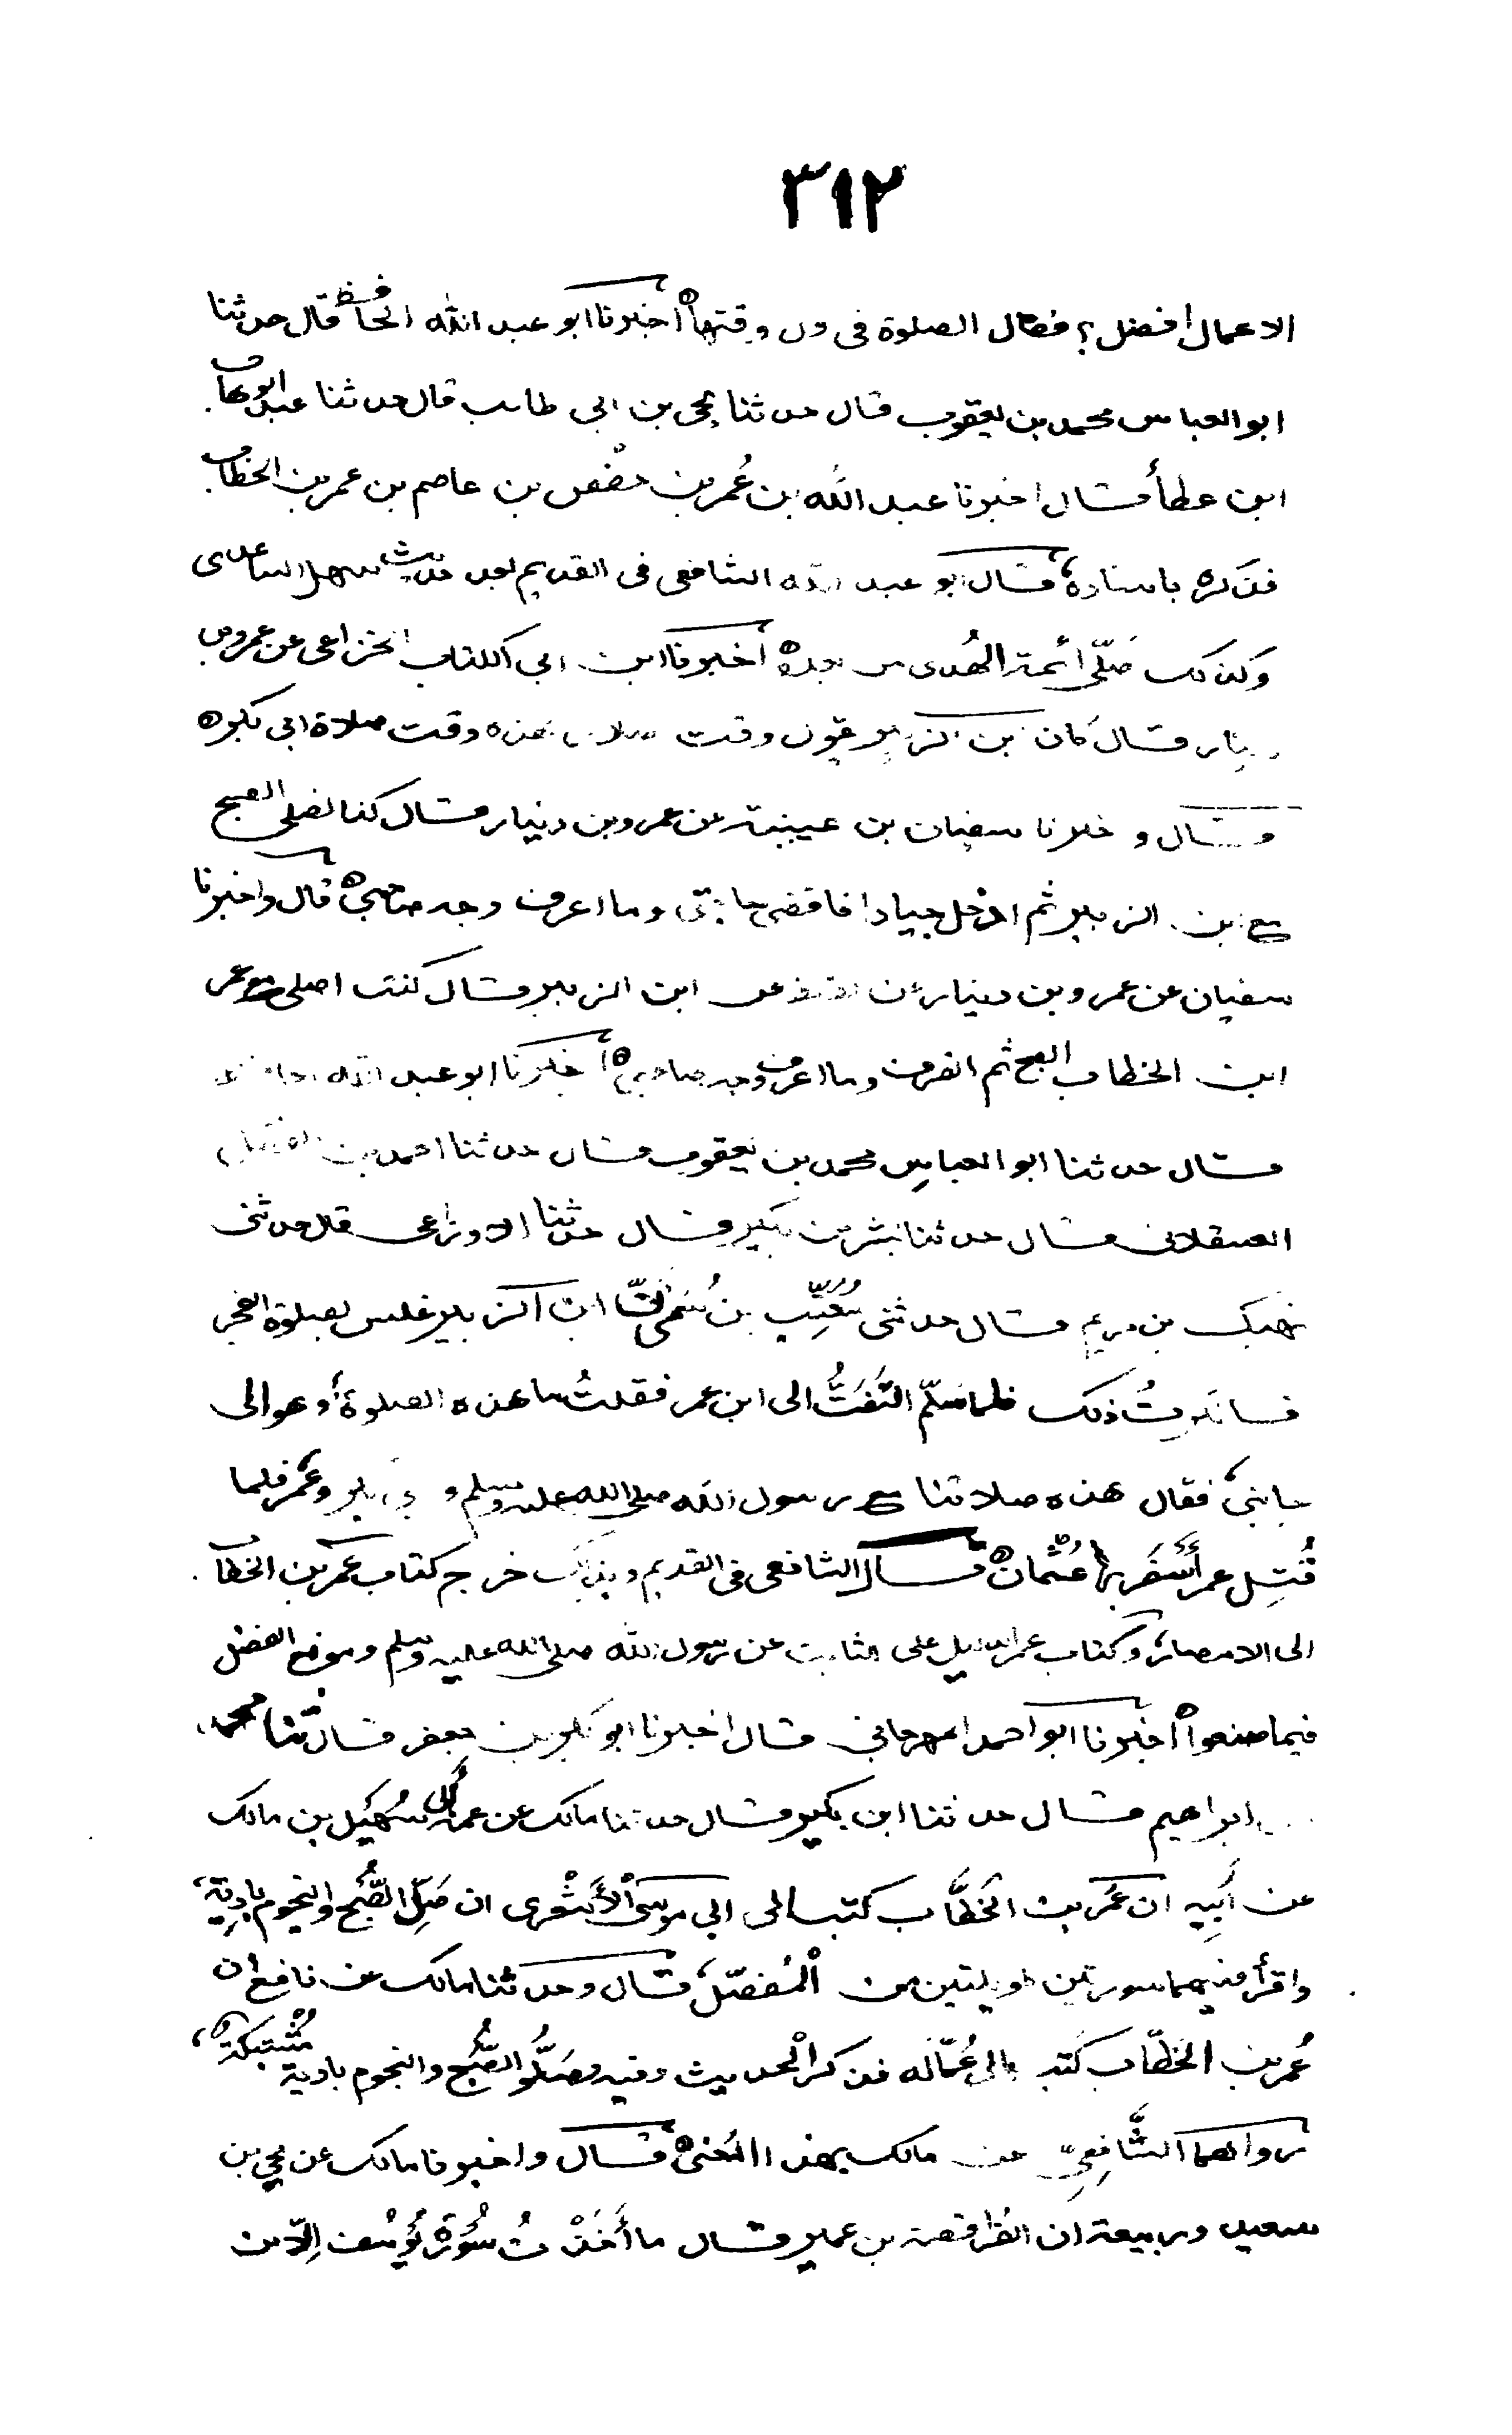 ٣١٢
الاعمال أفضل؟ فقال الصلوة فى اول وقتها ه أخبرنا ابو عبد الله الحافظ قال حدثنا
ابو العباس محمد بن يعقوب قال حدثنا يحيى بن ابى طالب قال حدثنا عبد الوهاب
ابن عطأ قال اخبرنا عبد الله بن عُمر بن حفص بن عاصم بن عمر بن الخطاب
فذكره باسناده، قال ابو عبد الله الشافعى فى القديم بعد حديث سهل الساعدى
وكذلك صَلّى أئمة الهُدى من بعده ه أخبرنا ابن ابى الكتاب الخزاعى عن عمرو بن
دينار قال كان ابن الزبير يقول وقت صلاتى هذه وقت صلاة ابى بكر ه
قال و خبرنا سفيان بن عيينة عن عمرو بن دينار قال كنا نصلى الصبح
مع ابن الزبير ثم ادخل جيادا فاقضى حاجتى وما اعرف وجه صاحبى ه قال واخبرنا
سفيان عن عمرو بن دينار عن ابن الزبير قال كنت اصلى مع عمر
ابن الخطاب الصبح ثم انصرف وما اعرف وجه صاحبى ه أخبرنا ابو عبد الله الحافظ
قال حدثنا ابو العباس محمد بن يعقوب قال حدثنا احمد بن الفضل
العسقلانى قال حدثنا بشر بن بكير قال حدثنا الاوزاعى قال حدثنى
نهيك بن مريم قال حدثنى مُغِيث بن سُمَىّ انّ ابن الزبير غلس بصلوة الفجر
فانكرتُ ذلك فلما سَلّم التَفَتُّ الى ابن عمر فقلتُ ما هذه الصلوة، وهو الى
جانبى، فقال هذه صلاتنا مع رسول الله صلى الله عليه وسلم و ابى بكر وعمر، فلما
قُتِل عمر أسْفَر بها عُثمان ه قال الشافعى فى القديم وبذلك خرج كتاب عمر بن الخطاب
الى الامصار، وكتاب عمر يدل على الثابت عن رسول الله صلى الله عليه وسلم وموضع الفضل
فيما صنعوا ه أخبرنا ابو احمد المهرجانى قال اخبرنا ابو بكر بن جعفر قال ثنا محمد
بن ابراهيم قال حدثنا ابن بكير قال حدثنا مالك عن عمه ابى سُهَيل بن مالك
عن أَبِيه ان عُمَر بن الخَطَّاب كتب الى ابى موسى الأَشْعرى ان صَلِّ الصُّبْح والنجوم بادِيَة،
واقرأ فيهما سورتين طويلتين من المُفصّل، قال وحدثنا مالك عن نافع ان
عُمر بن الخطّاب كتب الى عُمّاله فذكر الحديث وفيه وصَلُّوا الصُّبح والنجوم بادية مُشْتبكة،
رواهما الشَّافِعىّ عن مالك بهذا المعنى ه قال واخبرنا مالك عن يحيى بن
سعيد وربيعة ان الفُرافصة بن عمير قال ما أَخَذْتُ سُوْرَةَ يُوْسُف اِلّا من